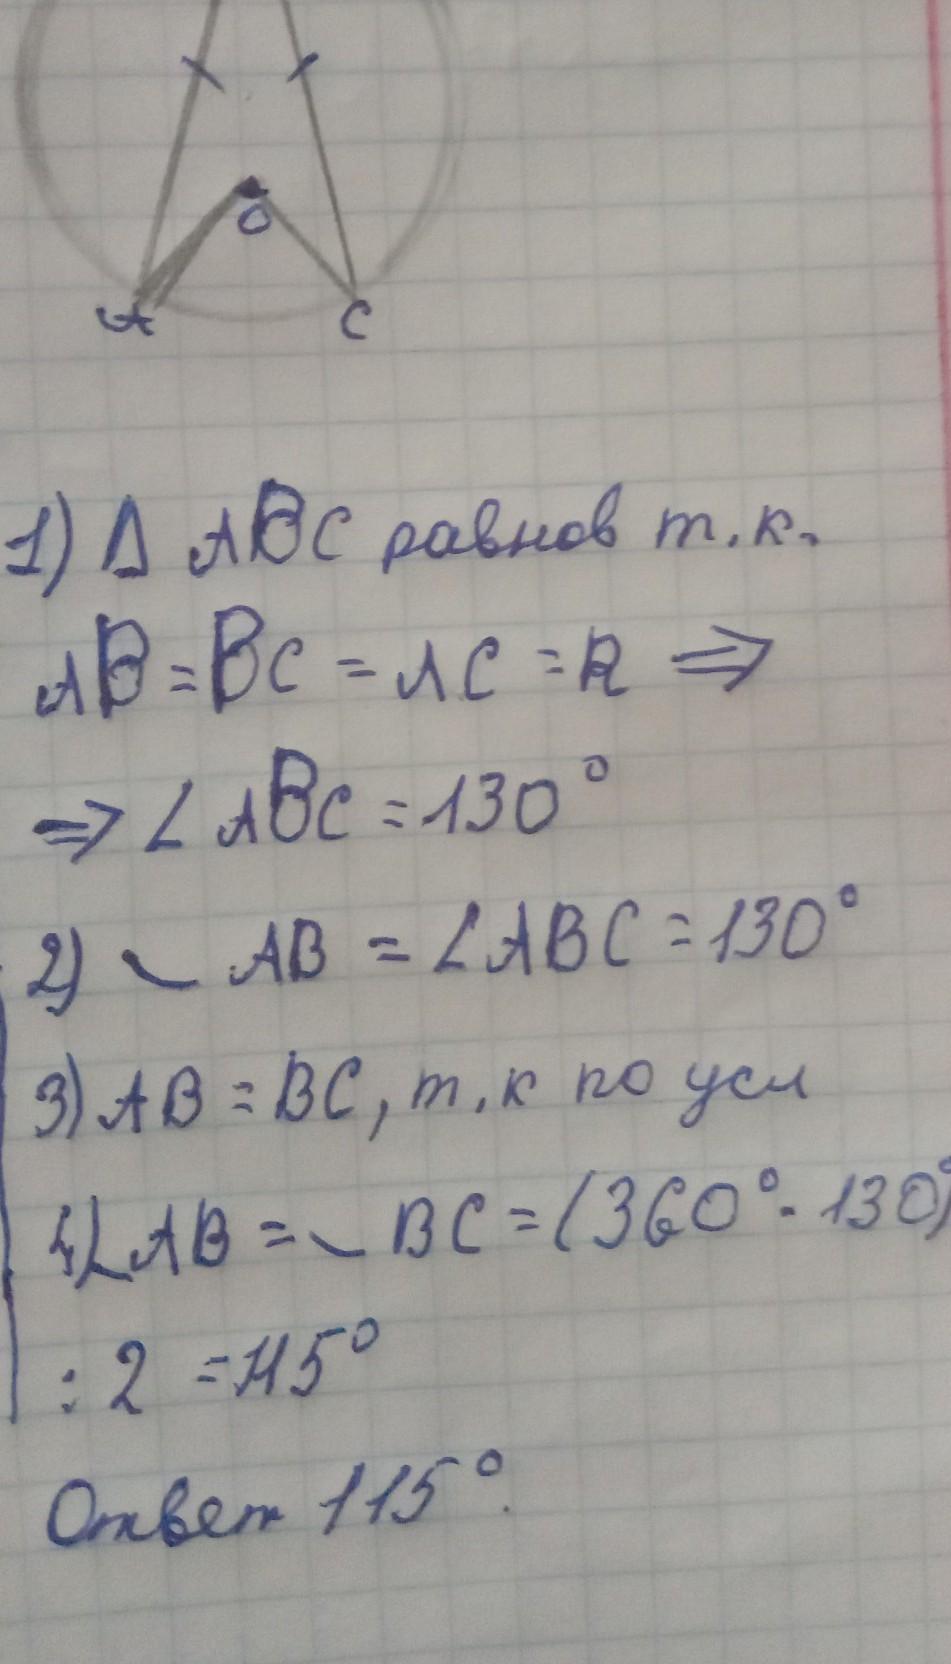 O
A C
1) Δ ABC равнов т.к.
AB = BC = AC = R ⇒
⇒ ∠ ABC = 130°
2) ◡ AB = ∠ABC = 130°
3) AB = BC, т.к по усл
4) ◡ AB = ◡ BC = (360° - 130°)
: 2 = 115°
Ответ 115°.